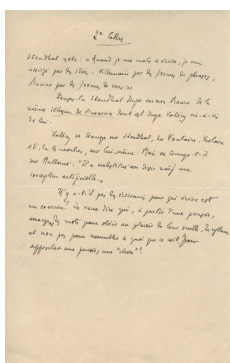 2e Cahier
Stendhal note : « Quand je me mets à écrire, je suis
assiégé par les idées. Villemain par les formes de phrases,
Racine par les formes de vers. »
Stendhal Racine de la
même illusion de dont est Valéry vis-à-vis
de lui.
Valéry se trompe sur Stendhal, La Fontaine, Voltaire
et, sur lui-même. Mais se trompe-t-il
sur Mallarmé : "Il a substitué au désir naïf une
conception artificielle."
N'y a-t-il pas des écrivains pour qui écrire est
un exercice. Je veux dire qui, à partir d'une pensée,
des mots pour obéir au plaisir de leur oreille, du rythme
et non pas pour ressembler à quoi que ce soit, pour
approcher une pensée, une "chose" ?